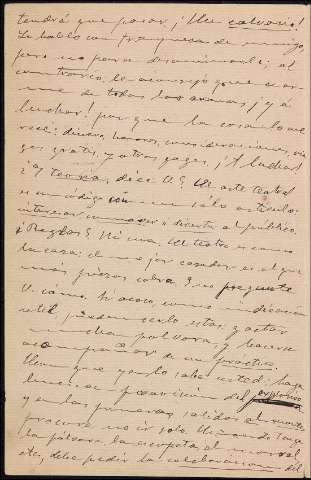 tendrá que pasar, ¡Un calvario!
Le hablo con franqueza de amigo,
pero no para desanimarle; al
contrario, le aconsejo que se ar-
me de todas las armas, ¡y á
luchar! porque la cosa lo me-
rece: dinero, honores, consideraciones,
ges gratis, y otras gages. ¡A luchar!
¿Y teoría, dice V? El arte teatral
es un código con un sólo artículo:
interesar, conmover ó divertir al público.
¿Reglas? Ni una. El teatro es como
la caza: el mejor cazador es el que
más piezas cobra; no pregunte
V. cómo. Si acaso, como indicación
util, pueden serlo estas: gastar
mucha pólvora, y hacerse
acompañar de un práctico.
Unas que ya lo sabe usted: haga
buena provisión del
y en las primeras salidas al monte
procure no ir solo. Cuando tenga
la pólvora, la escopeta, el morral,
etc, debe pedir la colaboración del